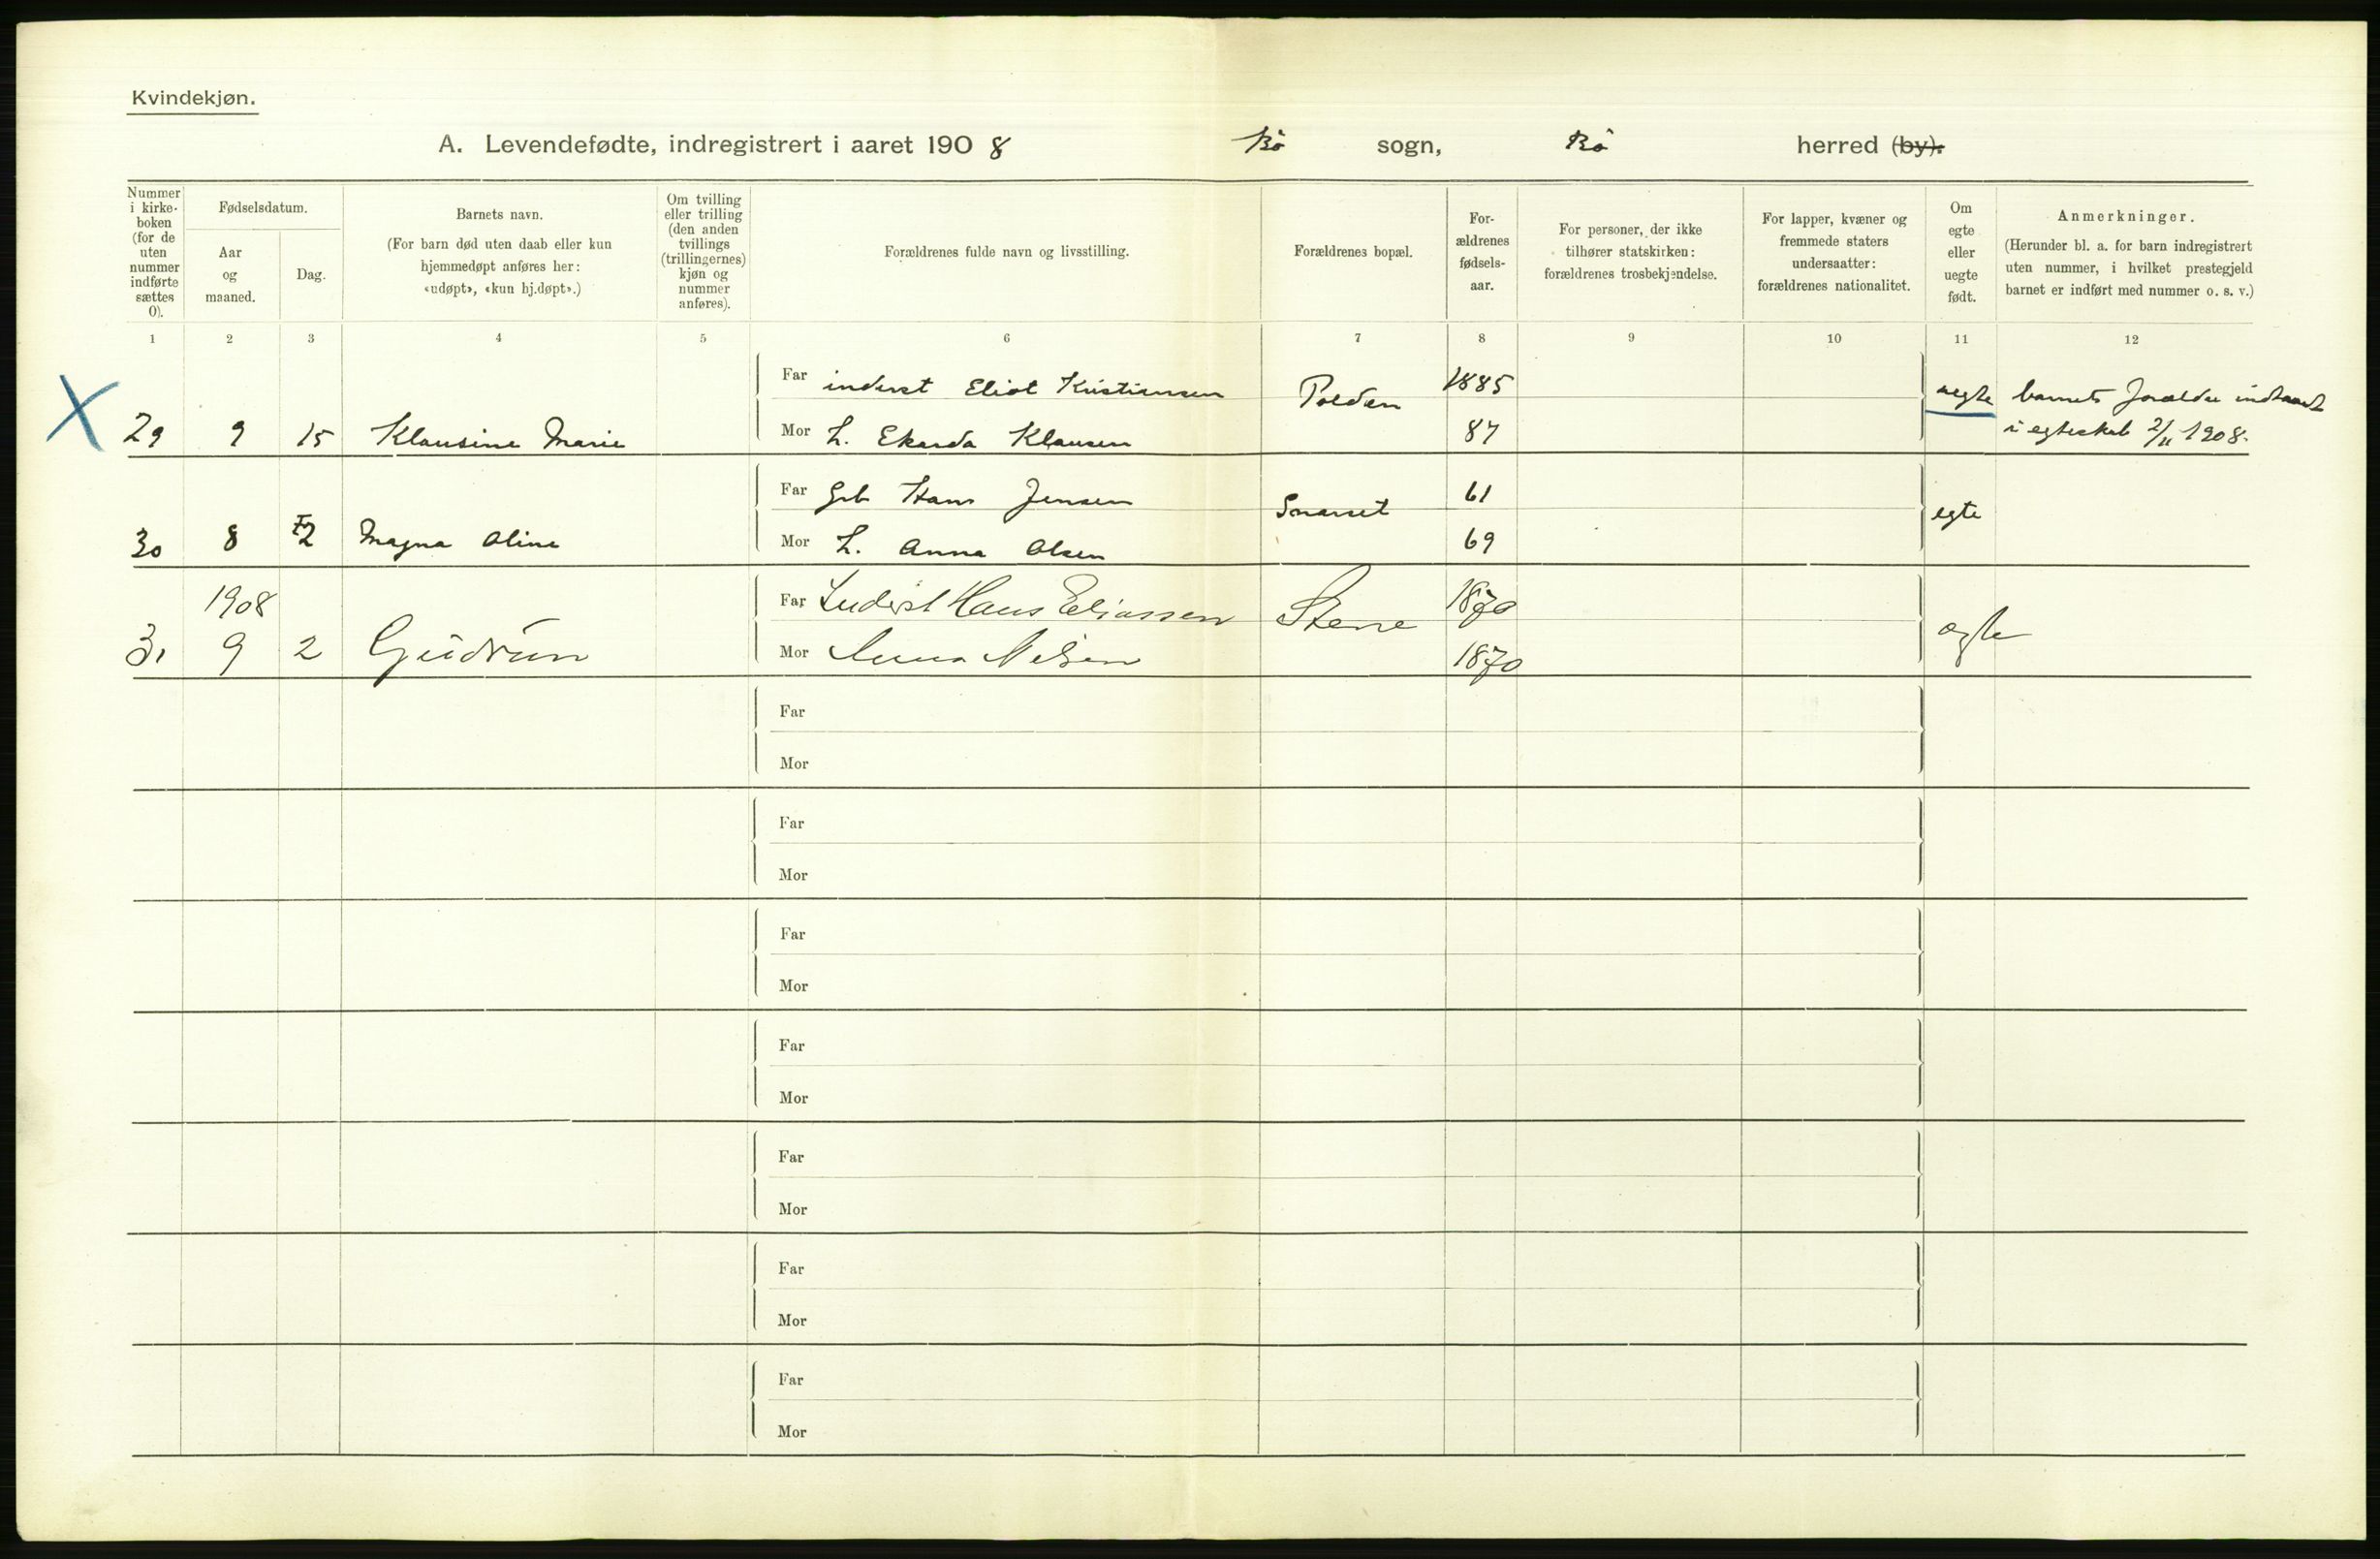 Kvindekjøn.
A. Levendefødte, indregistrert i aaret 1908 Bö sogn, Bö herred (by).
Nummer i kirke-boken (for de uten nummer indførte sættes 0).
Fødselsdatum.
Aar og maaned.
Dag.
Barnets navn.
(For barn død uten daab eller kun hjemmedøpt anføres her: «udøpt», «kun hj.døpt».)
Om tvilling eller trilling (den anden tvillings (trillingernes) kjøn og nummer anføres).
Forældrenes fulde navn og livsstilling.
Forældrenes bopæl.
For-ældrenes fødsels-aar.
For personer, der ikke tilhører statskirken: forældrenes trosbekjendelse.
For lapper, kvæner og fremmede staters undersaatter: forældrenes nationalitet.
Om egte eller uegte født.
Anmerkninger.
(Herunder bl. a. for barn indregistrert uten nummer, i hvilket prestegjeld barnet er indført med nummer o. s. v.)
1 2 3 4 5 6 7 8 9 10 11 12
Far inderst Eliot Kristiansen 1885
X 29 9 15 Klausine Marie Polden uegte barnets forældre indtraadt
Mor L. Ekarda Klausen 87 i egteskab 2/11 1908.
Far Grb Hans Jensen 61
30 8 2 Magna Oline egte
Mor L. Anna Olsen 69
1908 Far Inderst Hans Eliassen Stene 1870
31 9 2 Gudrun ægte
Mor Anna Nilsen 1870
Far
Mor
Far
Mor
Far
Mor
Far
Mor
Far
Mor
Far
Mor
Far
Mor